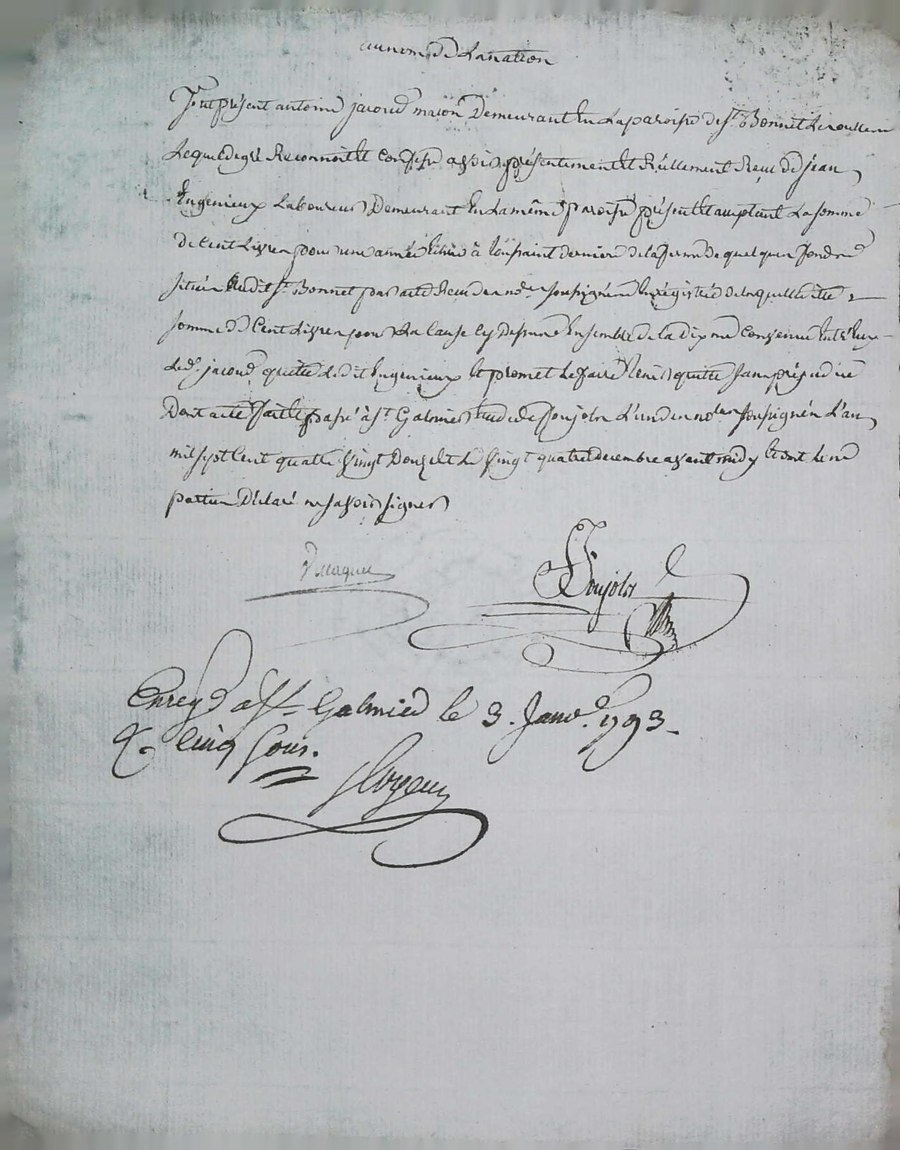 au nom de la nation
fut présent antoine jacoud macon Demeurant En la paroisse de st Bonnet les oulles
Lequel de gré Reconnoit et confesse avoir présentement et Réellement Reçu de jean
Ingenieux Laboureur Demeurant En la même paroisse présent et acceptant La somme
de Cent Livres pour une année Echue à Toussaint dernier de la ferme de quelques fonds
situés audit st Bonnet par acte Reçu des nores soussignés Enregistré de laquelle dite
somme de Cent Livres pour La cause cy Dessus Ensemble de la dixme Convenue Entr'Eux
Led. jacoud quitte Ledit Ingenieux Et promet Le faire tenir quitte sans préjudice
Dont acte fait et passé à st Galmier Etude de Poujols L'un des nores soussignés L'an
mil sept Cent quatre vingt Douze Et Le vingt quatre decembre avant midy Et ont Les
parties Déclaré ne savoir signer
Poujols
Enregé a st Galmier le 3. Janv. 1793.
R. cinq sous.